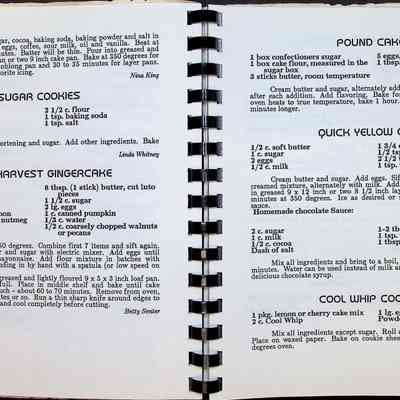 gar, cocoa, baking soda, baking powder and salt in
eggs, coffee, sour milk, oil and vanilla. Beat at
minutes. Batter will be thin. Pour into greased and
n or two 9 inch cake pan. Bake at 350 degrees for
oblong pan and 30 to 35 minutes for layer pans.
orite icing.
Nina King
SUGAR COOKIES
3 1/2 c. flour
1 tsp. baking soda
1 tsp. salt
ortening and sugar. Add other ingredients. Bake
Linda Whitney
HARVEST GINGERCAKE
8 tbsp. (1 stick) butter, cut into
pieces
1 1/2 c. sugar
2 lg. eggs
1 c. canned pumpkin
1/2 c. water
1/2 c. coarsely chopped walnuts
or pecans
oon
nutmeg
50 degrees. Combine first 7 items and sift again.
er and sugar with electric mixer. Add eggs until
ayonnaise. Add flour mixture in batches with
nding in by hand with a spatula (or low speed on
greased and lightly floured 9 x 5 x 3 inch loaf pan.
full. Place in middle shelf and bake until cake
uch - about 60 to 70 minutes. Remove from oven,
tes or so. Run a thin sharp knife around edges to
and cool completely before cutting.
Betty Senter
POUND CAKE
1 box confectioners sugar
1 box cake flour, measured in the
sugar box
3 sticks butter, room temperature
5 eggs,
1 tsp.
Cream butter and sugar, alternately add
after each addition. Add flavoring. Bake fo
oven heats to true temperature, bake 1 hour.
minutes longer.
QUICK YELLOW C
1/2 c. soft butter
1 c. sugar
2 eggs
1/2 c. milk
1 3/4 c
1/2 tsp
2 1/2
1 tsp.
Cream butter and sugar. Add eggs. Sift
creamed mixture, alternately with milk. Add
in greased 9 x 12 inch or two 8 1/2 inch lay
minutes at 350 degrees. Ice as desired or s
sauce.
Homemade chocolate Sauce:
2 c. sugar
1 c. milk
1/2 c. cocoa
Dash of salt
1-2 tb
1 tsp.
1 tbsp
Mix all ingredients and bring to a boil,
minutes. Water can be used instead of milk an
delicious chocolate syrup.
COOL WHIP COO
1 pkg. lemon or cherry cake mix
2 c. Cool Whip
1 lg. e
Powde
Mix all ingredients except sugar. Roll
Place on waxed paper. Bake on cookie shee
degrees oven.